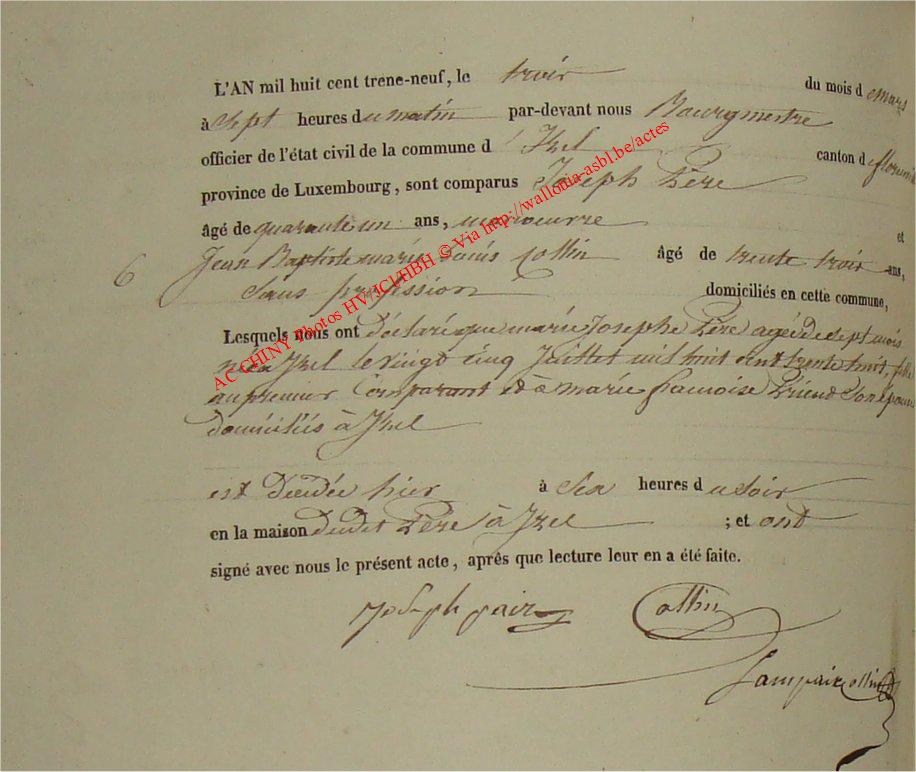 L'AN mil huit cent trene-neuf, le trois du mois de mars
à sept heures du matin par-devant nous Bourgmestre
officier de l'état civil de la commune d'Izel canton de
province de Luxembourg, sont comparus Joseph Père
âgé de quarante un ans, manoeuvre et
6 Jean Baptiste marie Louis Collin âgé de trente trois ans,
sans profession domiciliés en cette commune,
Lesquels nous ont déclaré que marie Josephe Père agée de sept mois
née à Izel le vingt cinq Juillet mil huit cent trente huit, fille
au premier Comparant et à marie francoise son épouse
domiciliés à Izel
est Décédée hier à six heures du soir
en la maison dudit Père à Izel ; et ont
signé avec nous le présent acte, après que lecture leur en a été faite.
Joseph pair Collin
AC CHINY Photos HV/ICI/HBH © Via http://wallonia-asbl.be/actes